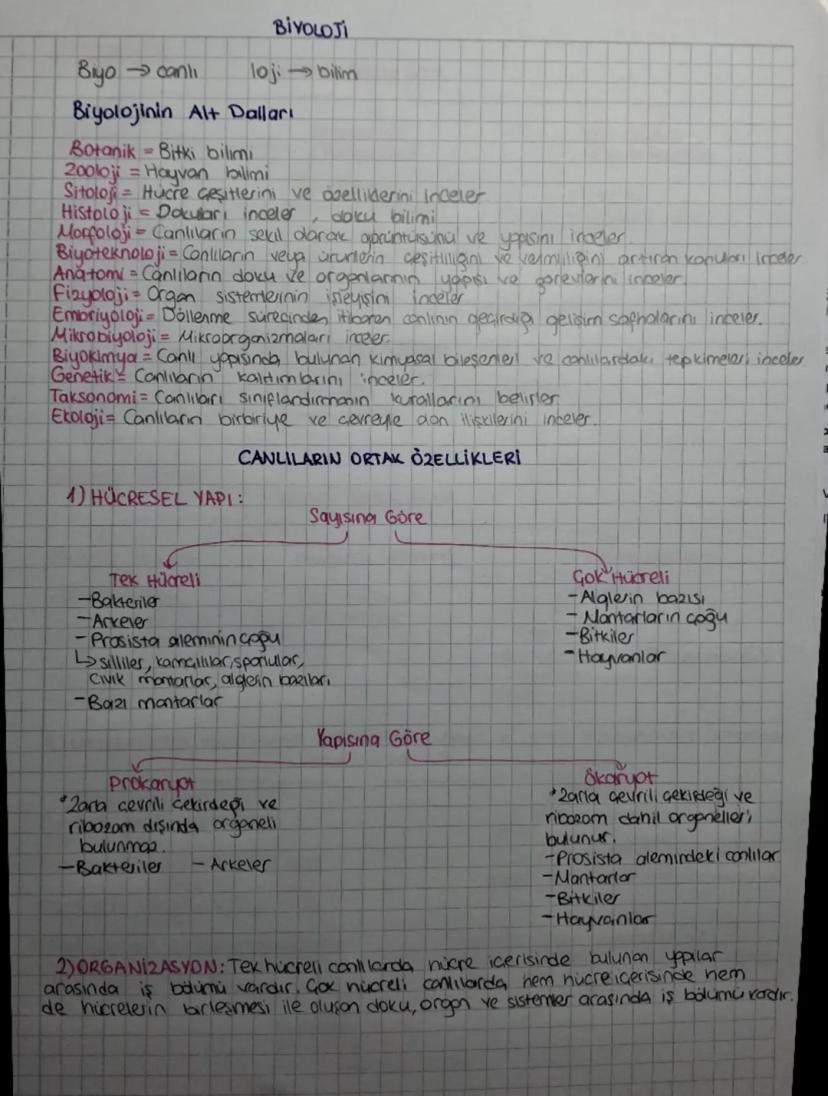 BİYOLOJİ
Biyo → canlı loji → bilim
Biyolojinin Alt Dalları
Botanik = Bitki bilimi
Zooloji = Hayvan bilimi
Sitoloji = Hücre çeşitlerini ve özelliklerini inceler
Histoloji = Dokuları inceler, doku bilimi
Morfoloji = Canlıların şekil olarak görüntüsünü ve yapısını inceler.
Biyoteknoloji = Canlıların veya ürünlerin çeşitliliğini ve verimliliğini artıran konuları inceler
Anatomi = Canlıların doku ve organlarının yapısı ve görevlerini inceler
Fizyoloji = Organ sistemlerinin işleyişini inceler
Embriyoloji = Döllenme sürecinden itibaren canlının geçirdiği gelişim safhalarını inceler.
Mikrobiyoloji = Mikroorganizmaları inceler.
Biyokimya = Canlı yapısında bulunan kimyasal bileşenleri ve canlılardaki tepkimeleri inceler
Genetik = Canlıların kalıtımlarını inceler.
Taksonomi = Canlıları sınıflandırmanın kurallarını belirler
Ekoloji = Canlıların birbiriye ve çevreyle olan ilişkilerini inceler.
CANLILARIN ORTAK ÖZELLİKLERİ
1) HÜCRESEL YAPI:
Sayısına Göre
Tek Hücreli
-Bakteriler
-Arkeler
-Prosista aleminin çoğu
↳ silliler, kamçılılar, sporlular,
Cıvık mantarlar, alglerin bazıları
-Bazı mantarlar
Çok Hücreli
-Alglerin bazısı
-Mantarların çoğu
-Bitkiler
-Hayvanlar
Yapısına Göre
Prokaryot
*Zarla çevrili çekirdeği ve
ribozom dışında organeli
bulunmaz.
-Bakteriler -Arkeler
Ökaryot
*Zarla çevrili çekirdeği ve
ribozom dahil organelleri
bulunur.
-Prosista alemindeki canlılar
-Mantarlar
-Bitkiler
-Hayvanlar
2) ORGANİZASYON: Tek hücreli canlılarda hücre içerisinde bulunan yapılar
arasında iş bölümü vardır. Çok hücreli canlılarda hem hücre içerisinde hem
de hücrelerin birleşmesi ile oluşan doku, organ ve sistemler arasında iş bölümü vardır.